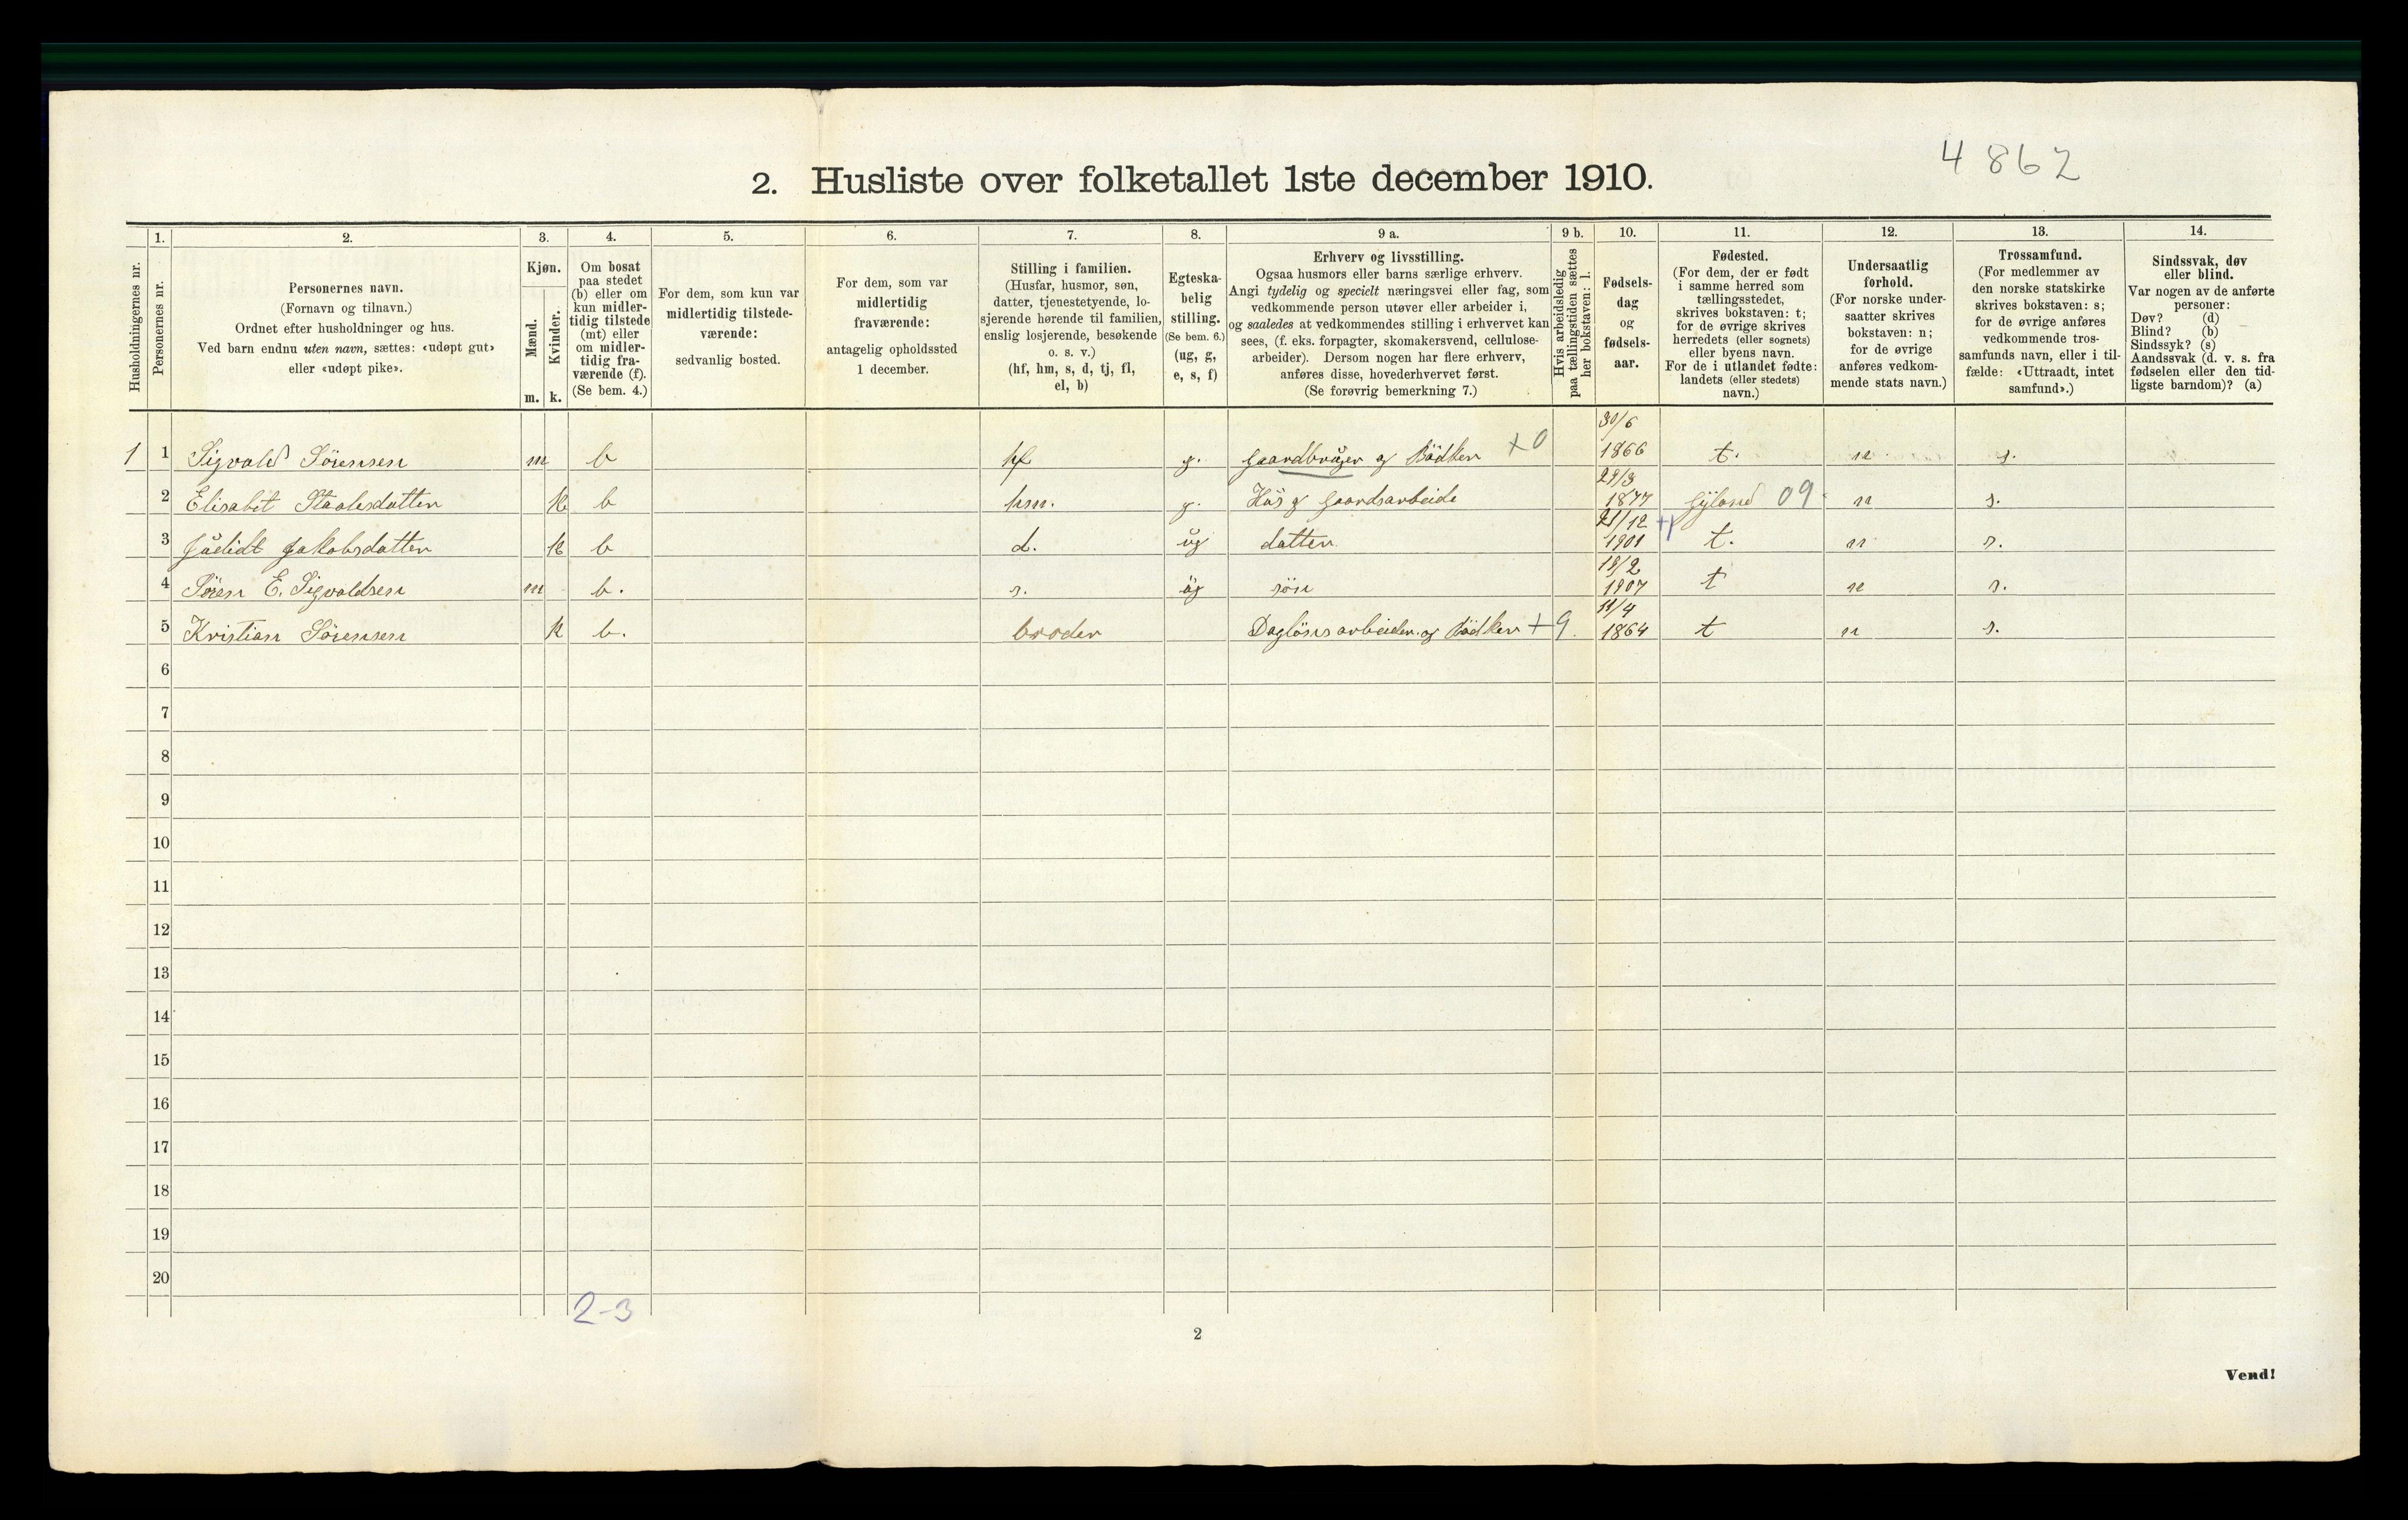 4862
2. Husliste over folketallet 1ste december 1910.
Husholdningernes nr.
1.
Personernes nr.
2.
Personernes navn.
(Fornavn og tilnavn.)
Ordnet efter husholdninger og hus.
Ved barn endnu uten navn, sættes: «udøpt gut»
eller «udøpt pike».
3.
Kjøn.
Mænd.
Kvinder.
m. k.
4.
Om bosat
paa stedet
(b) eller om
kun midler-
tidig tilstede
(mt) eller
om midler-
tidig fra-
værende (f).
(Se bem. 4.)
5.
For dem, som kun var
midlertidig tilstede-
værende:
sedvanlig bosted.
6.
For dem, som var
midlertidig
fraværende:
antagelig opholdssted
1 december.
7.
Stilling i familien.
(Husfar, husmor, søn,
datter, tjenestetyende, lo-
sjerende hørende til familien,
enslig losjerende, besøkende
o. s. v.)
(hf, hm, s, d, tj, fl,
el, b)
8.
Egteska-
belig
stilling.
(Se bem. 6.)
(ug, g,
e, s, f)
9 a.
Erhverv og livsstilling.
Ogsaa husmors eller barns særlige erhverv.
Angi tydelig og specielt næringsvei eller fag, som
vedkommende person utøver eller arbeider i,
og saaledes at vedkommendes stilling i erhvervet kan
sees, (f. eks. forpagter, skomakersvend, cellulose-
arbeider). Dersom nogen har flere erhverv,
anføres disse, hovederhvervet først.
(Se forøvrig bemerkning 7.)
9 b.
Hvis arbeidsledig
paa tællingstiden sættes
her bokstaven: l.
10.
Fødsels-
dag
og
fødsels-
aar.
11.
Fødested.
(For dem, der er født
i samme herred som
tællingsstedet,
skrives bokstaven: t;
for de øvrige skrives
herredets (eller sognets)
eller byens navn.
For de i utlandet fødte:
landets (eller stedets)
navn.)
12.
Undersaatlig
forhold.
(For norske under-
saatter skrives
bokstaven: n;
for de øvrige
anføres vedkom-
mende stats navn.)
13.
Trossamfund.
(For medlemmer av
den norske statskirke
skrives bokstaven: s;
for de øvrige anføres
vedkommende tros-
samfunds navn, eller i til-
fælde: «Uttraadt, intet
samfund».)
14.
Sindssvak, døv
eller blind.
Var nogen av de anførte
personer:
Døv? (d)
Blind? (b)
Sindssyk? (s)
Aandssvak (d. v. s. fra
fødselen eller den tid-
ligste barndom)? (a)
30/6
1 1 Sigvald Sörensen m b hf g. Gaardbrüger og Bödker +0 1866 t. n s.
29/3
2 Elisabet Staalesdatter k b hm. g. Hüs g Gaardsarbeide 1877 Gyland 09 n s.
21/12
3 Jüdidt Jakobsdatter k b d. üg datter 1901 t. n s.
19/2
4 Sören E. Sigvaldsen m b. s. üg sön 1907 t n s.
11/4
5 Kristian Sörensen k b. broder Daglönsarbeider og Bödker +9. 1864 t n s.
6
7
8
9
10
11
12
13
14
15
16
17
18
19
20
2-3
2
Vend!